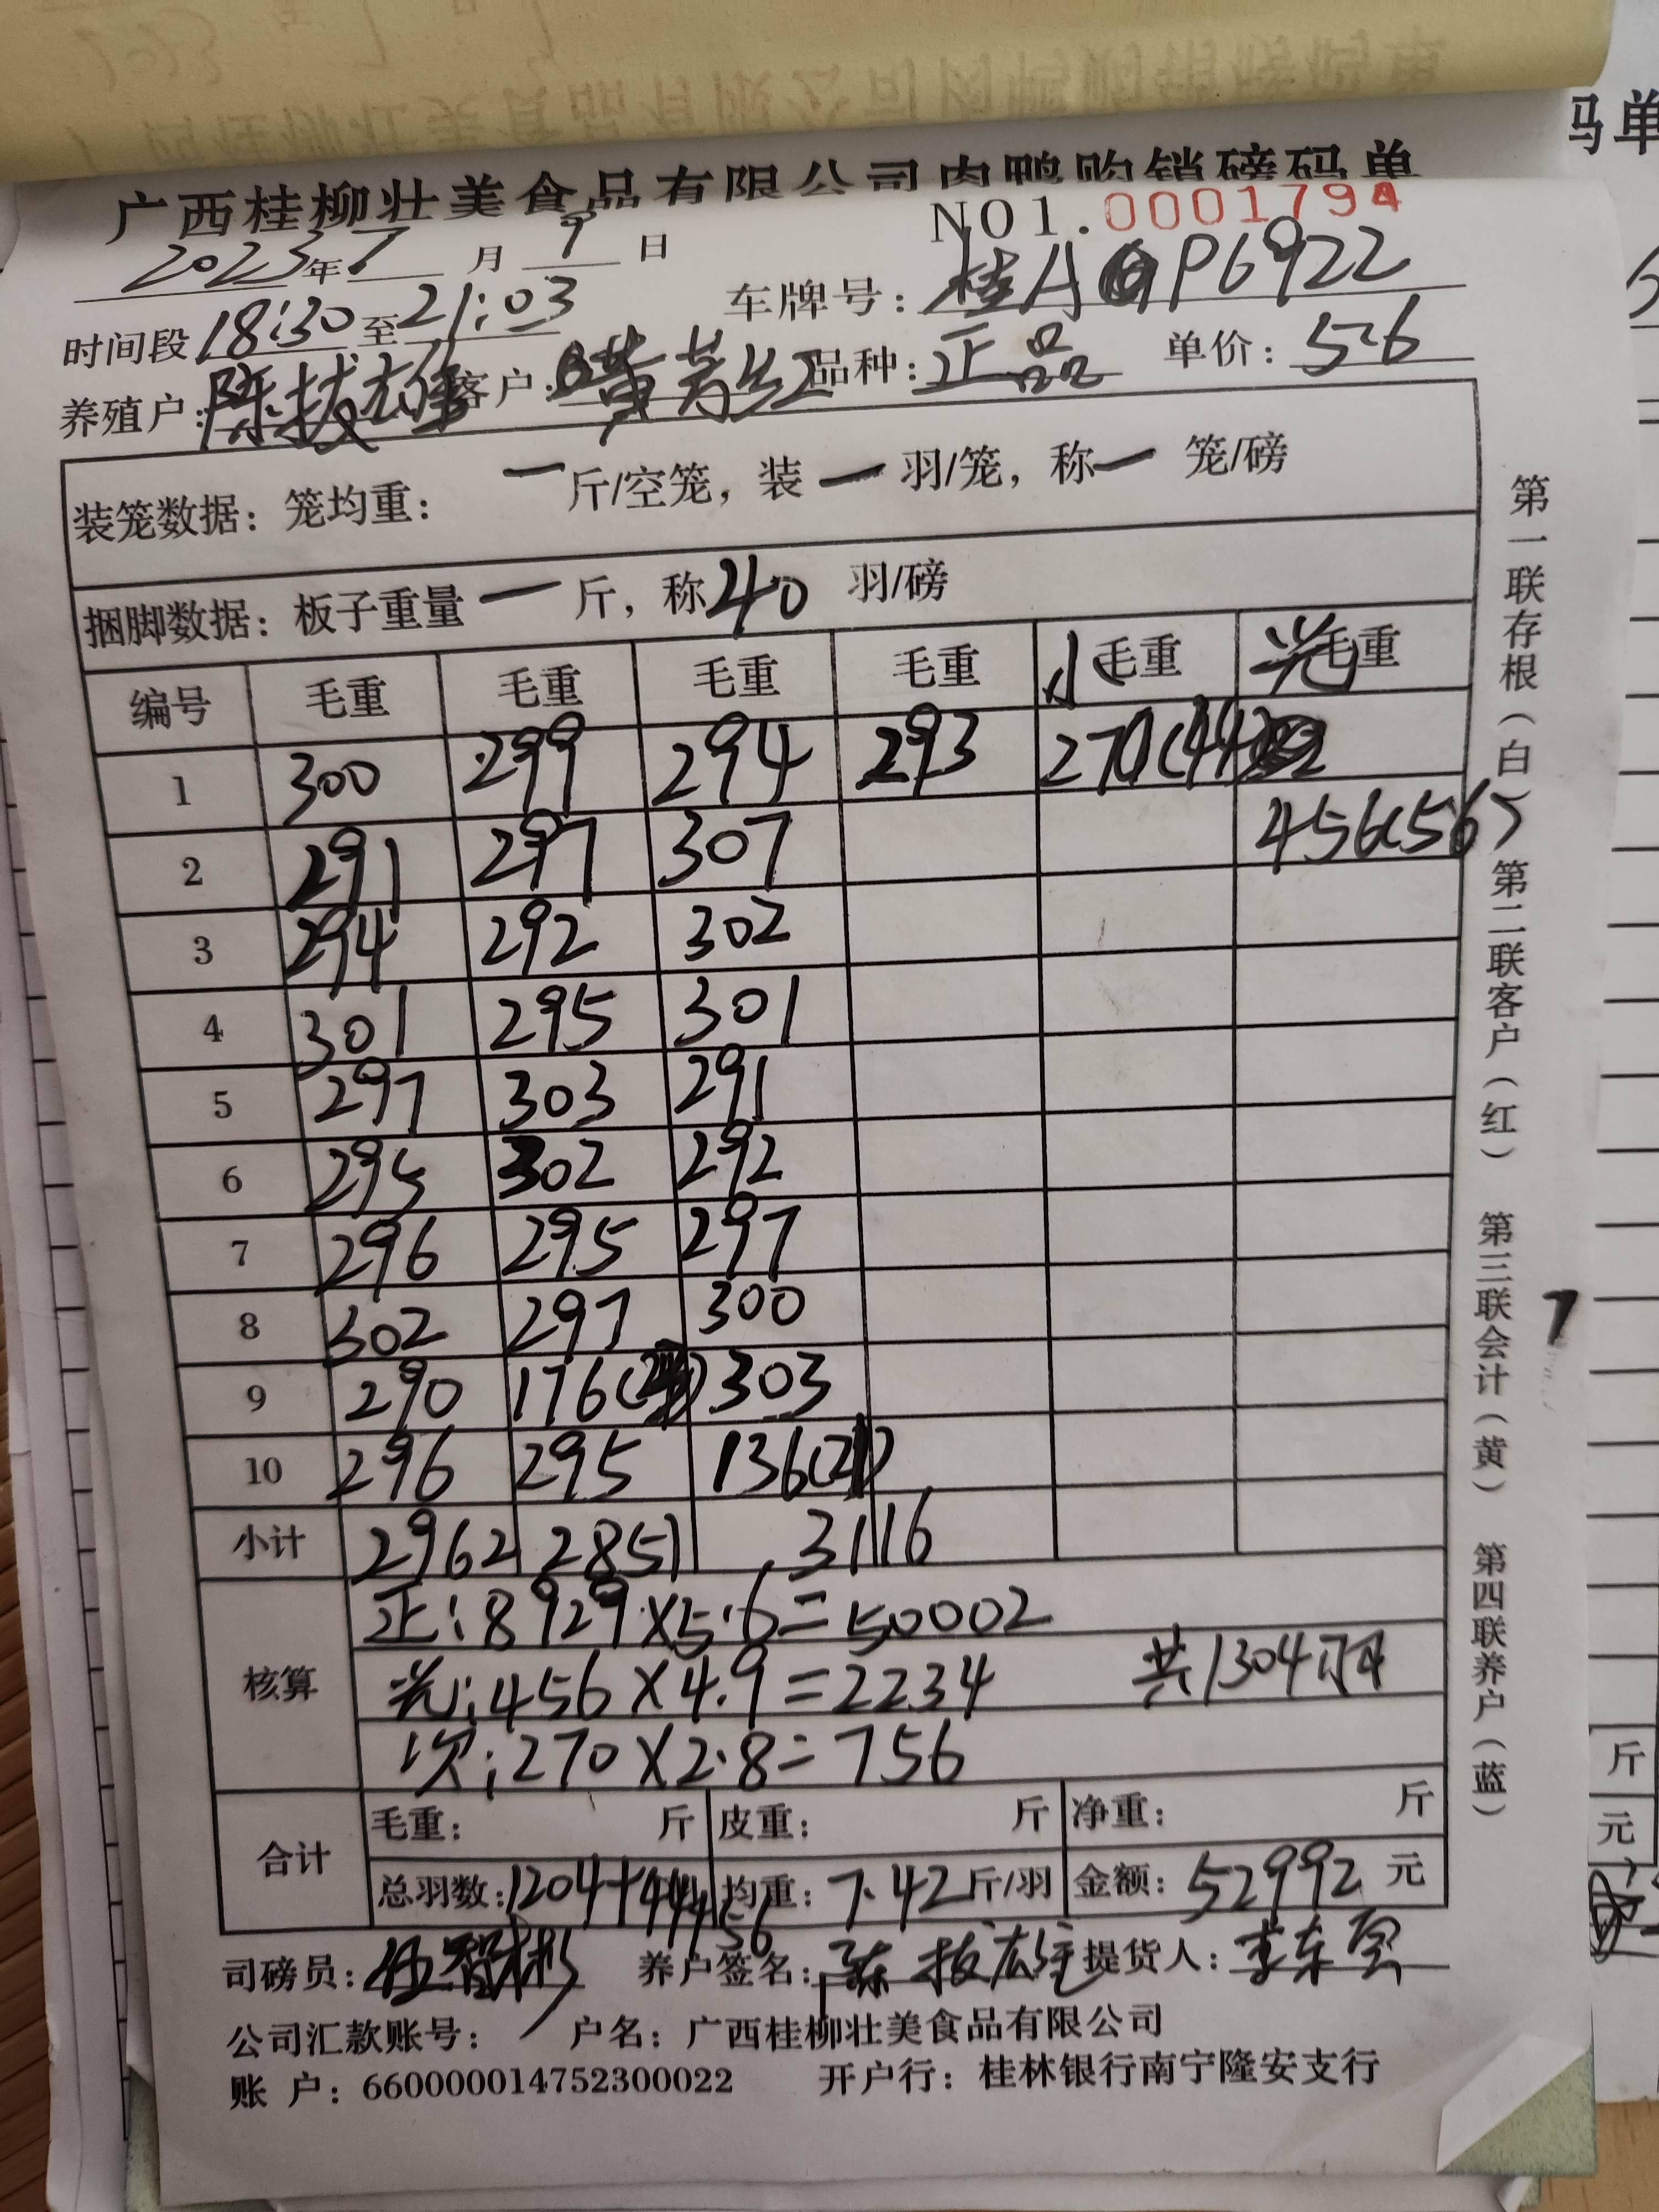 广西桂柳壮美食品有限公司肉鸭购销磅码单
NO1.0001794
2023年7月9日
时间段18:30至21:03 车牌号:桂A P6922
养殖户:陈拔雄 客户:黄芳红 品种:正品 单价:5.6
装笼数据:笼均重: 一斤/空笼,装一羽/笼,称一笼/磅
捆脚数据:板子重量一斤,称40羽/磅
编号 毛重 毛重 毛重 毛重 小毛重 光毛重
1 300 299 294 293 270(44)
2 291 297 307 456(56)
3 294 292 302
4 301 295 301
5 297 303 291
6 295 302 292
7 296 295 297
8 302 297 300
9 290 176 303
10 296 295 136(21)
小计 2962 2851 3116
核算
正:8929×5.6=50002
光:456×4.9=2234 共1304羽
次:270×2.8=756
合计
毛重: 斤 皮重: 斤 净重: 斤
总羽数:1204+44+56 均重:7.42斤/羽 金额:52992元
司磅员: 养户签名:陈拔雄 提货人:李东
公司汇款账号: 户名:广西桂柳壮美食品有限公司
账 户:660000014752300022 开户行:桂林银行南宁隆安支行
第一联存根(白) 第二联客户(红) 第三联会计(黄) 第四联养户(蓝)
码单
斤
元